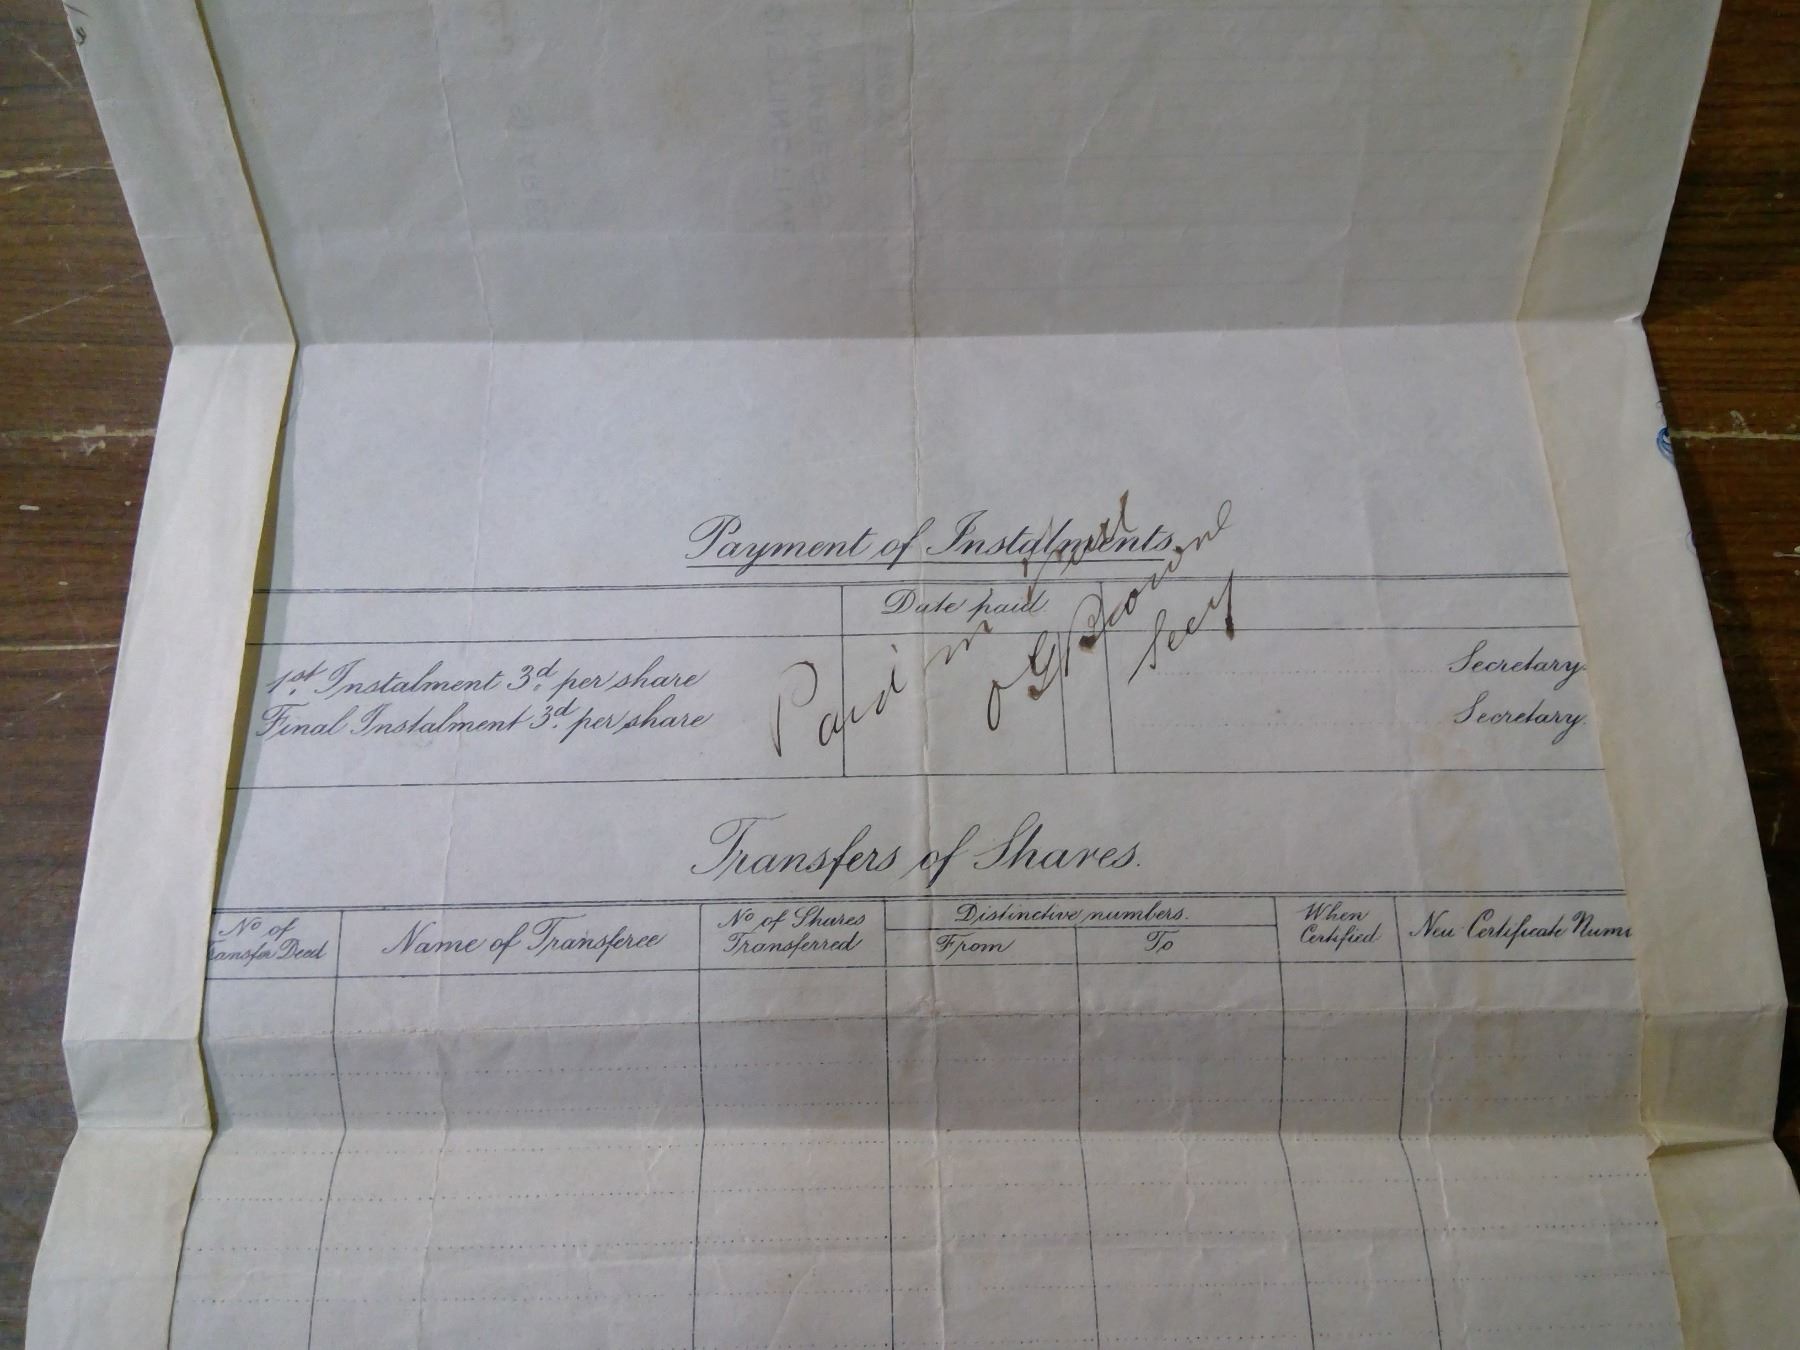 Payment of Instalments.
Date paid
1st. Instalment 3d. per share
Secretary.
Final Instalment 3d. per share
Secretary.
Paid in full
Browne
Secy
Transfers of Shares.
No of
ransfer Deed
Name of Transferee
No of Shares
Transferred
Distinctive numbers.
From
To
When
Certified
New Certificate Num